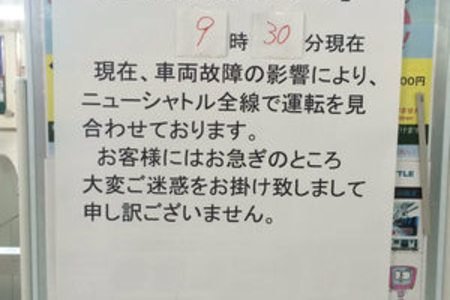 9時30分現在
現在、車両故障の影響により、
ニューシャトル全線で運転を見
合わせております。
お客様にはお急ぎのところ
大変ご迷惑をお掛け致しまして
申し訳ございません。
00円
TLE